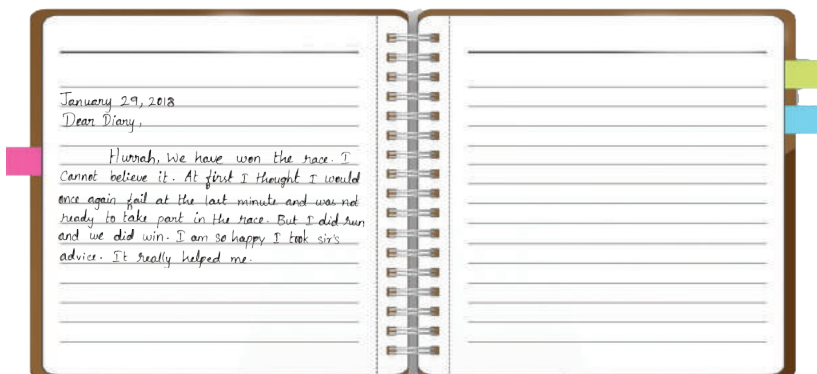 January 29, 2018
Dear Diary,
Hurrah, We have won the race. I
Cannot believe it. At first I thought I would
once again fail at the last minute and was not
ready to take part in the race. But I did run
and we did win. I am so happy I took sir's
advice. It really helped me.